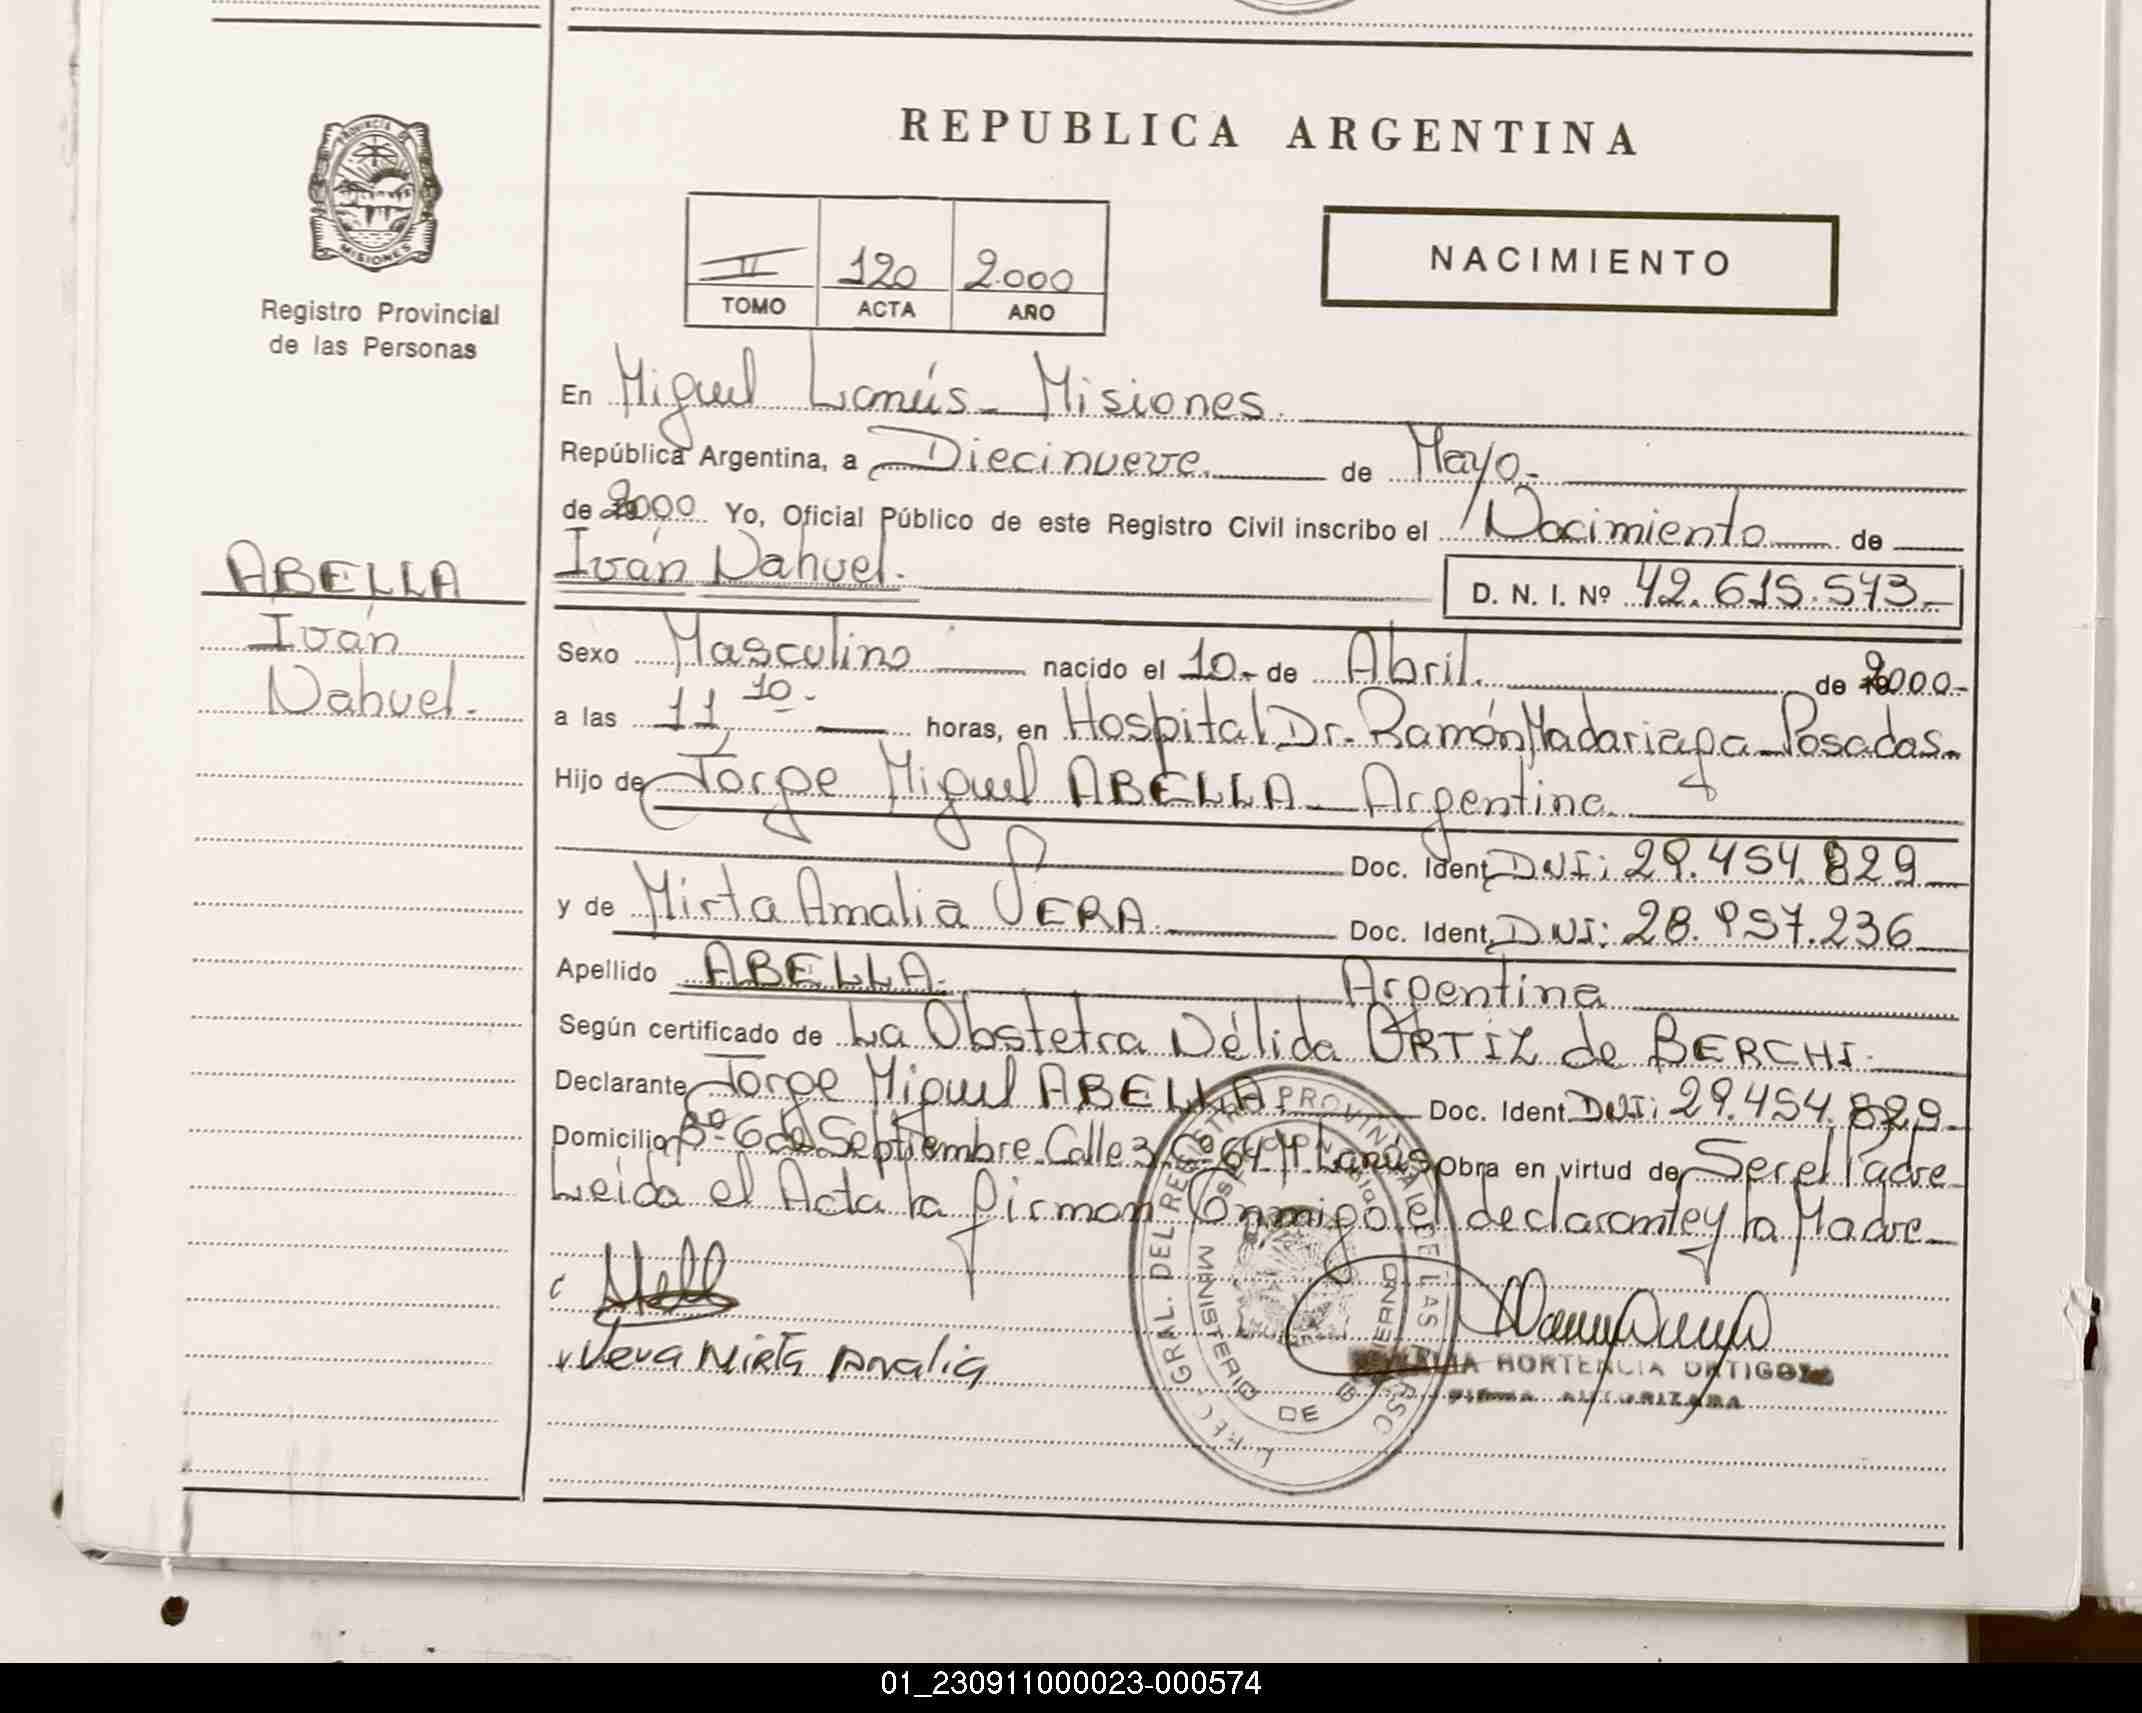 REPUBLICA ARGENTINA
PROVINCIA DE
MISIONES
Registro Provincial
de las Personas
II 120 2.000
TOMO ACTA AÑO
NACIMIENTO
En Miguel Lanús - Misiones.
República Argentina, a Diecinueve. de Mayo.-
de 2000 Yo, Oficial Público de este Registro Civil inscribo el Nacimiento de
Iván Nahuel. D. N. I. Nº 42.615.573.-
ABELLA
Iván
Nahuel.-
Sexo Masculino nacido el 10.- de Abril. de 2000.-
a las 11,10.- horas, en Hospital Dr. Ramón Madariaga - Posadas.-
Hijo de Jorge Miguel ABELLA - Argentino.
Doc. Ident. DNI: 29.454.829
y de Mirta Amalia VERA. Doc. Ident. DNI: 28.957.236
Apellido ABELLA. Argentina
Según certificado de La Obstetra Nélida ORTIZ de BERCHI.
Declarante Jorge Miguel ABELLA Doc. Ident. DNI: 29.454.829.-
Domicilio Bº 6 de Septiembre Calle 3 Cº 64 M. Lanús Obra en virtud de Ser el Padre
Leida el Acta la firman Conmigo el declarante y la Madre.
Vera Mirta Amalia
HORTENCIA ORTIGOZA
FIRMA AUTORIZADA
GRAL. DEL REGISTRO PROVINCIAL DE LAS
MINISTERIO DE GOBIERNO
01_230911000023-000574